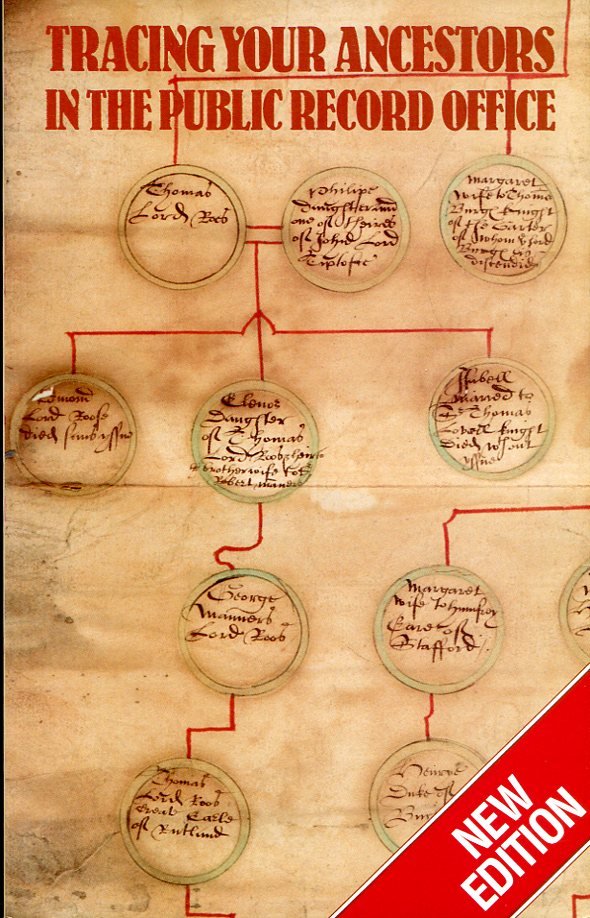 TRACING YOUR ANCESTORS
IN THE PUBLIC RECORD OFFICE
Thomas
Lord Roos
Philipe
Daughter and
one of theires
of John Lord
Tiptofte
Margaret
wife to Thoms
Burgh knight
of the Garter
of whom the lord
Burgh is
discended
Edmond
Lord Roose
died sans issue
Elenor
Daughter
of Thomas
Lord Roos
brother wife to
Robert manors
Isabell
maried to
Sr Thomas
Lovell knight
died wtout
issue
George
Manners
Lord Roos
Margaret
wife to humfrey
Earle of
Stafford
Thomas
Lord Roos
Creat Earle
of Rutland
Henrye
Duke of
NEW
EDITION